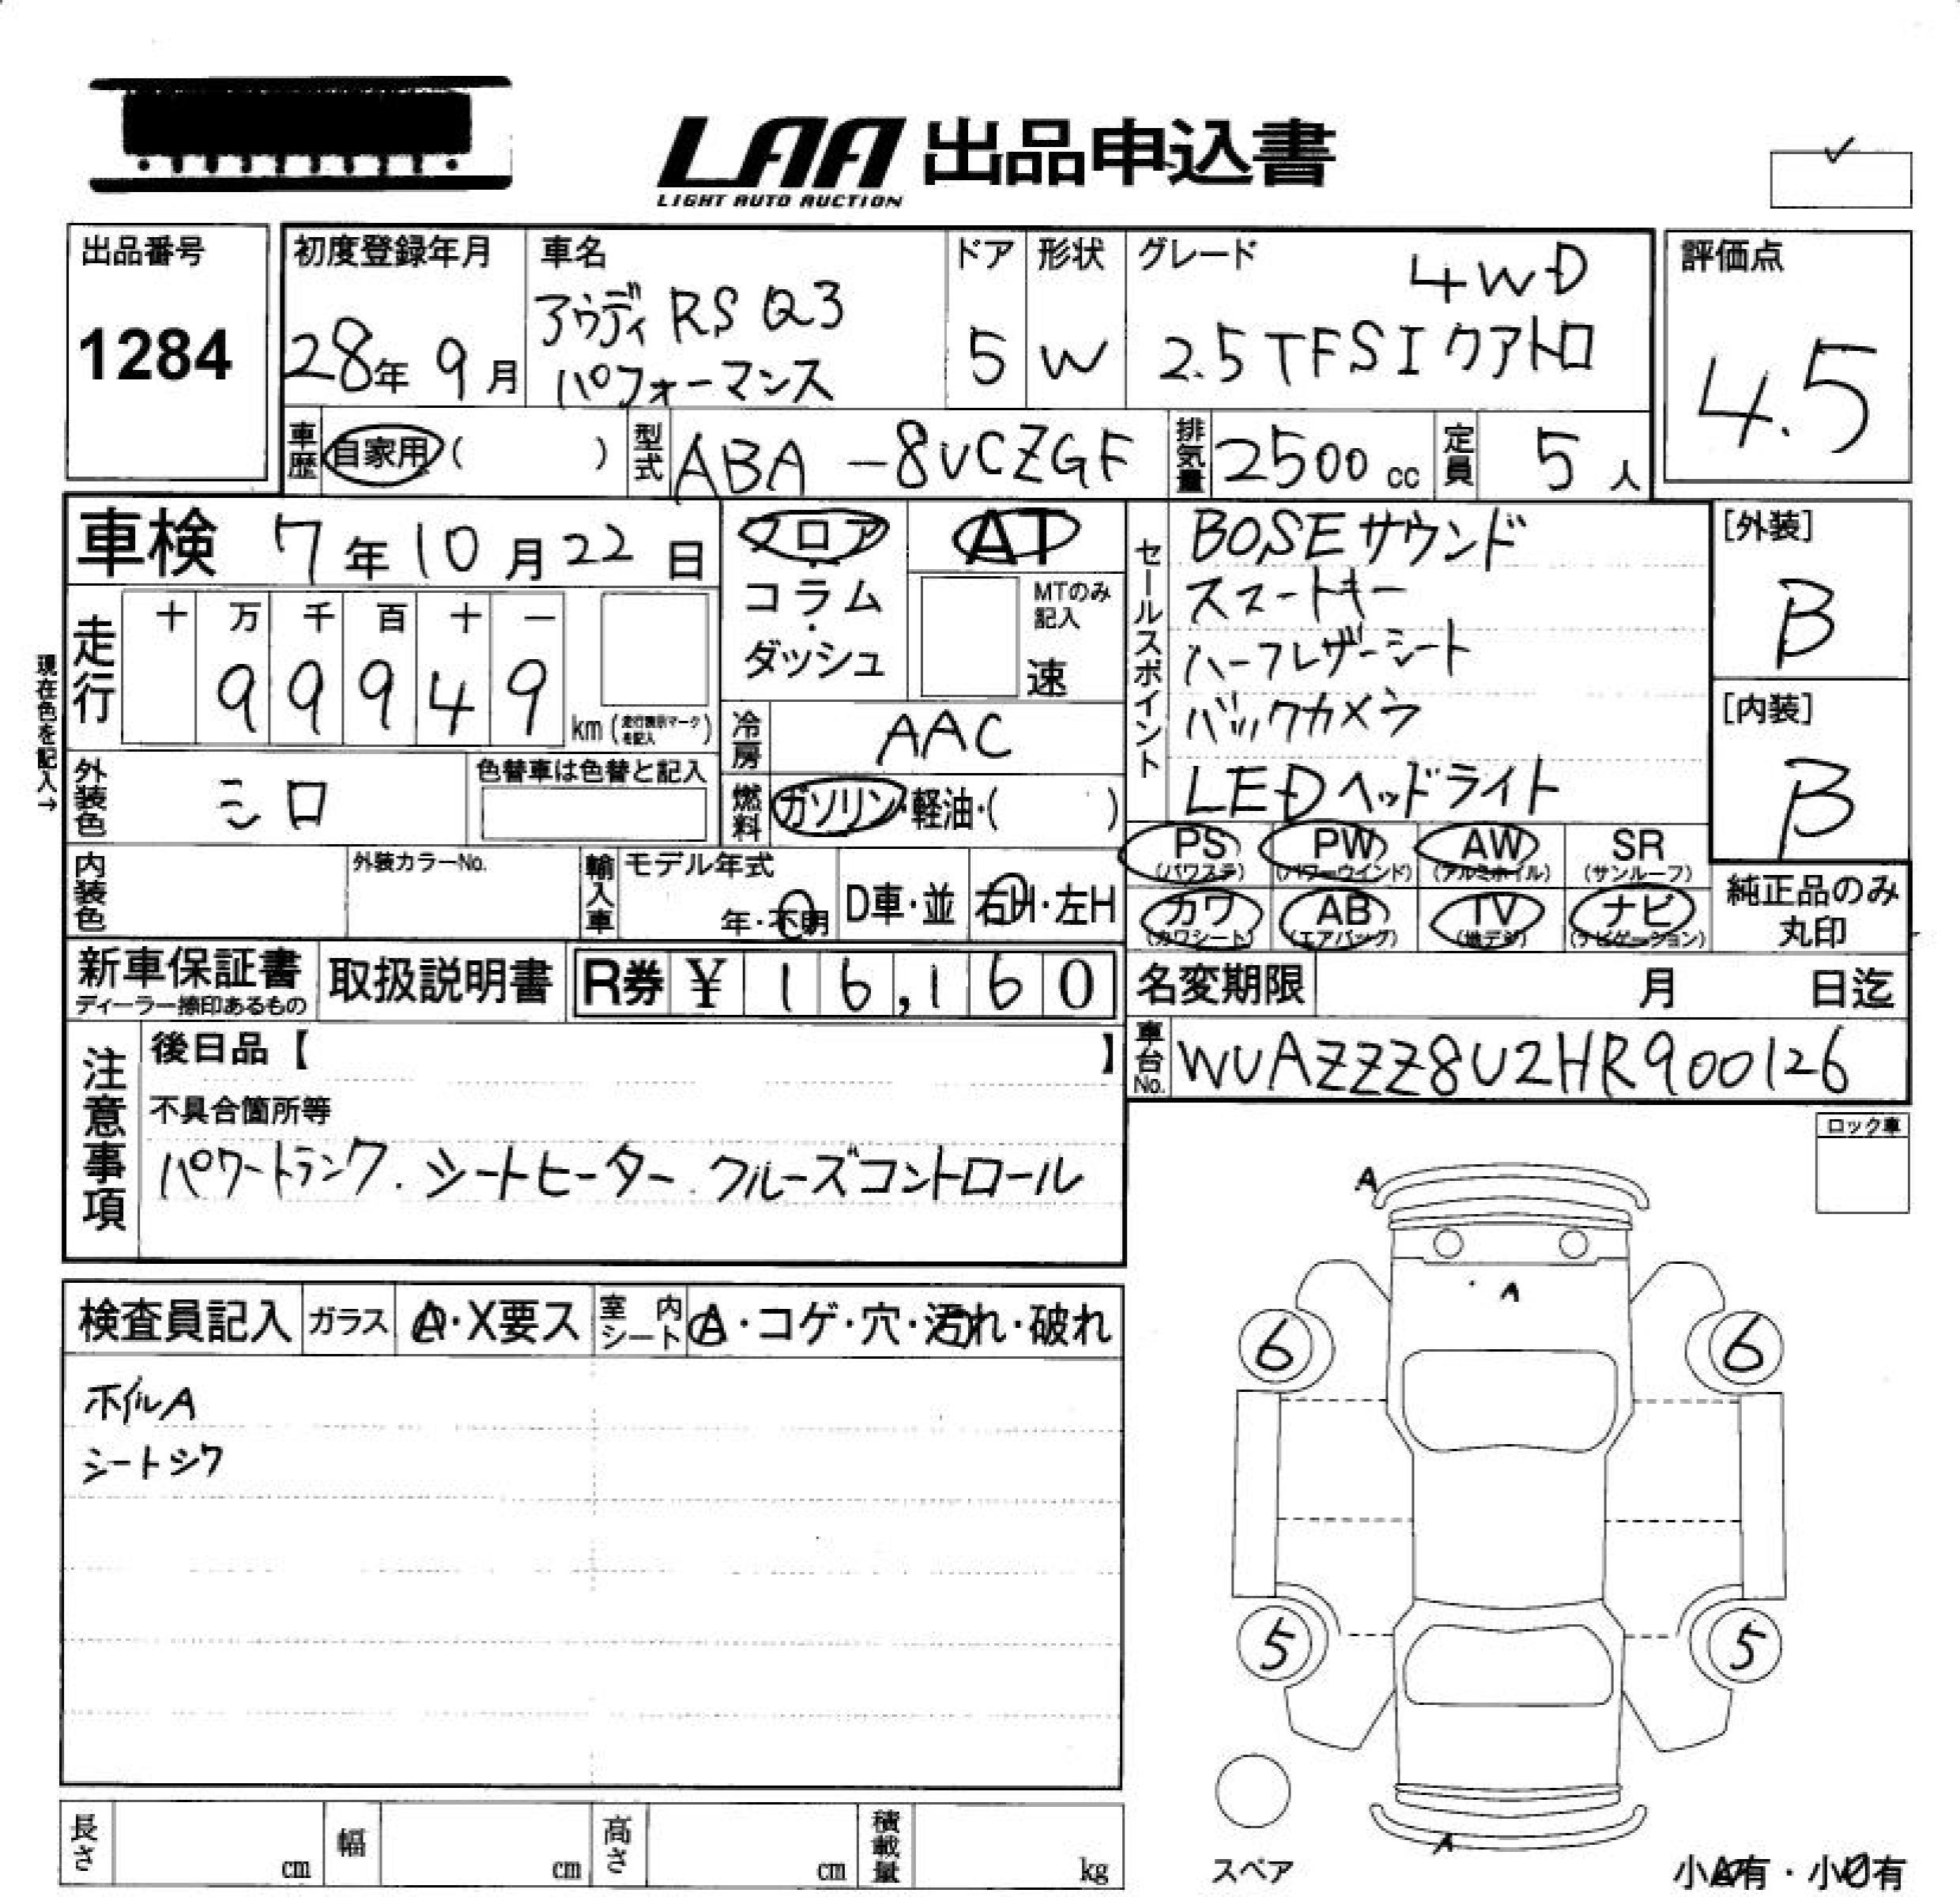 LAA 出品申込書
LIGHT AUTO AUCTION
✓
出品番号
1284
初度登録年月
28年 9月
車名
アウディ RS Q3
パフォーマンス
ドア
5
形状
W
グレード
4WD
2.5TFSIクアトロ
評価点
4.5
車歴 自家用 ( )
型式 ABA-8UCZGF
排気量 2500 cc
定員 5 人
車検 7年10月22日
現在色を記入→
走行
十 万 千 百 十 一
9 9 9 4 9
km (走行表示マークを記入)
フロア
・
コラム
・
ダッシュ
AT
MTのみ
記入
速
セールスポイント
BOSEサウンド
スマートキー
ハーフレザーシート
バックカメラ
LEDヘッドライト
[外装]
B
[内装]
B
冷房 AAC
外装色 シロ
色替車は色替と記入
燃料 ガソリン・軽油・( )
PS (パワステ)
PW (パワーウインド)
AW (アルミホイル)
SR (サンルーフ)
カワ (カワシート)
AB (エアバッグ)
TV (地デジ)
ナビ (ナビゲーション)
純正品のみ
丸印
内装色
外装カラーNo.
輸入車
モデル年式
年・不明
D車・並
右H・左H
新車保証書
ディーラー捺印あるもの
取扱説明書
R券 ¥ 16,160
名変期限 月 日迄
車台No. WUAZZZ8U2HR900126
注意事項
後日品【 】
不具合箇所等
パワートランク.シートヒーター.クルーズコントロール
ロック車
検査員記入
ガラス A・X要ス
室内シート A・コゲ・穴・汚れ・破れ
ホイルA
シートシワ
A
A
6 6
5 5
A
スペア
小A有・小U有
長さ cm
幅 cm
高さ cm
積載量 kg